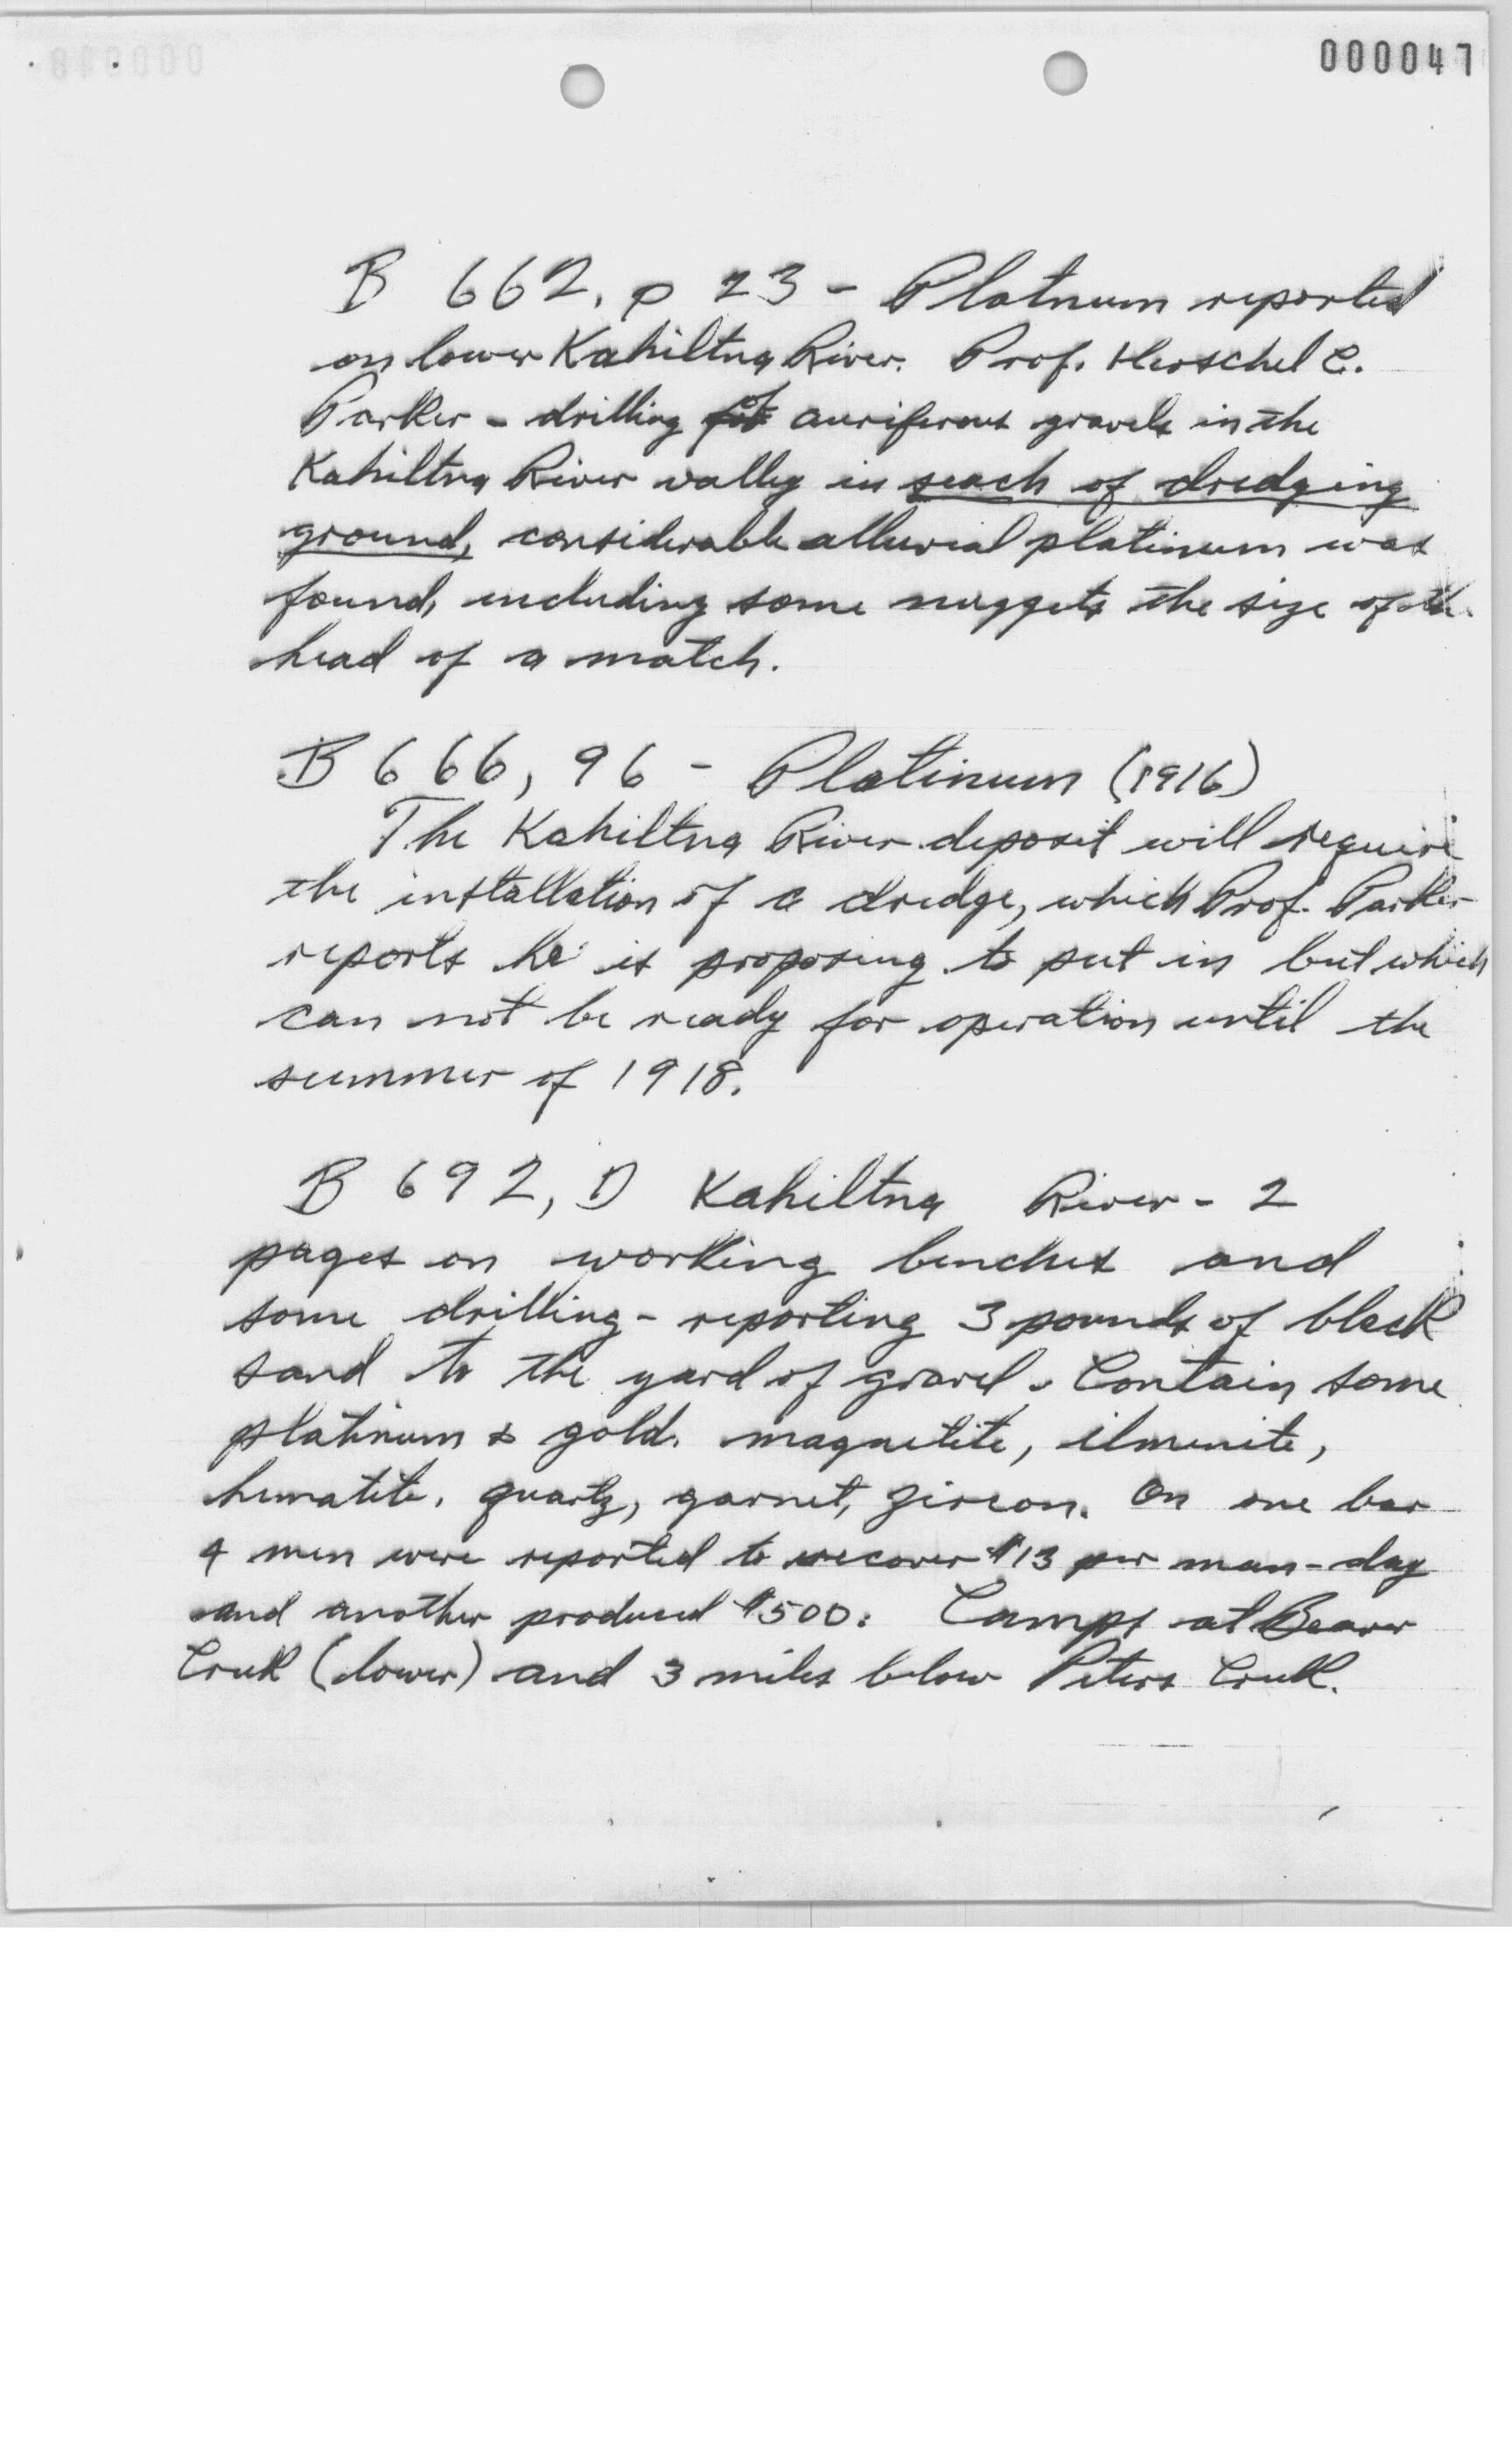 000047
B 662, p 23 - Platnum reported
on lower Kahiltna River. Prof. Herschel C.
Parker - drilling of auriferous gravels in the
Kahiltna River valley in seach of dredging
ground, considerable alluvial platinum was
found, including some nuggets the size of the
head of a match.
B 666, 96 - Platinum (1916)
The Kahiltna River deposit will require
the installation of a dredge, which Prof. Parker
reports he is proposing to put in but which
can not be ready for operation until the
summer of 1918.
B 692, D Kahiltna River - 2
pages on working benches and
some drilling - reporting 3 pounds of black
sand to the yard of gravel. Contain some
platinum & gold. magnetite, ilmenite,
hematite, quartz, garnet, zircon. On one bar
4 men were reported to recover $13 per man-day
and another produced $500. Camps at Beaver
Creek (lower) and 3 miles below Peters Creek.